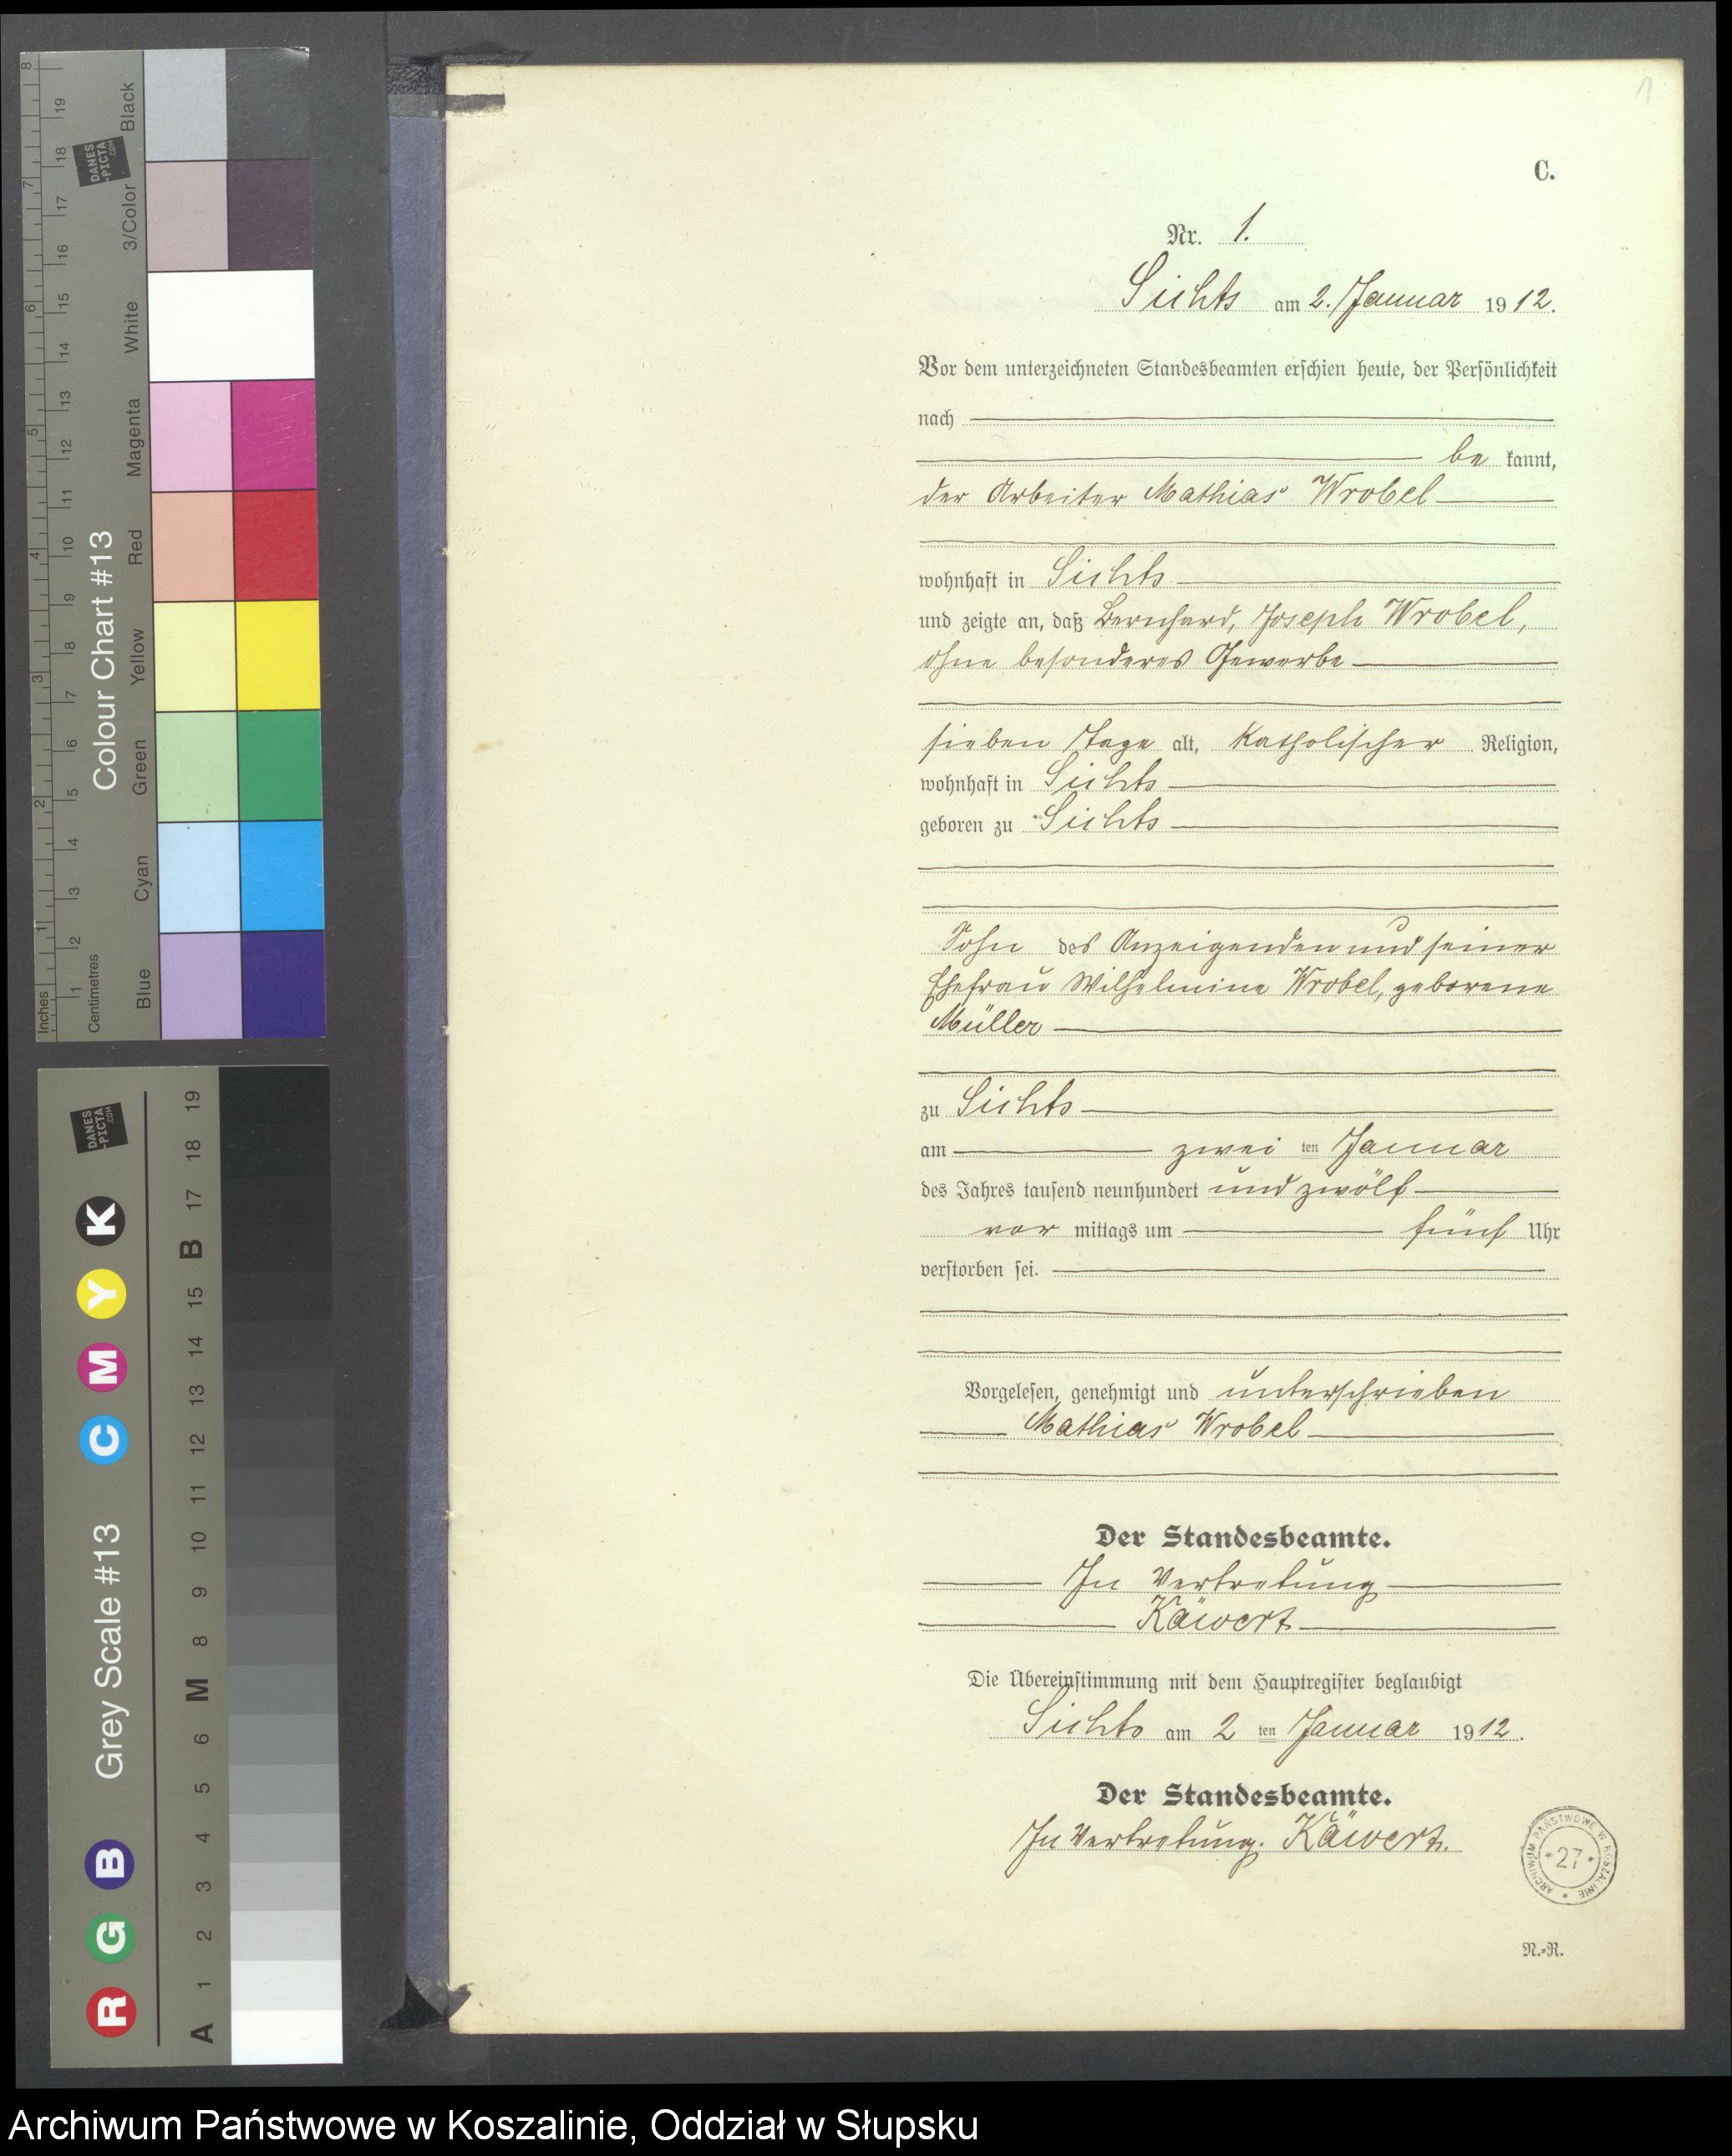 1
C.
Nr. 1.
Sichts am 2. Januar 1912.
Vor dem unterzeichneten Standesbeamten erschien heute, der Persönlichkeit
nach
be kannt,
der Arbeiter Mathias Wrobel
wohnhaft in Sichts
und zeigte an, daß Bernhard, Joseph Wrobel,
ohne besonderes Gewerbe
sieben Tage alt, katholischer Religion,
wohnhaft in Sichts
geboren zu Sichts
Sohn des Anzeigenden und seiner
Ehefrau Wilhelmine Wrobel, geborene
Müller
zu Sichts
am zwei ten Januar
des Jahres tausend neunhundert und zwölf
vor mittags um fünf Uhr
verstorben sei.
Vorgelesen, genehmigt und unterschrieben
Mathias Wrobel
Der Standesbeamte.
In Vertretung
Käwert
Die Übereinstimmung mit dem Hauptregister beglaubigt
Sichts am 2 ten Januar 1912.
Der Standesbeamte.
In Vertretung. Käwert.
ARCHIWUM PAŃSTWOWE W KOSZALINIE
* 27 *
N.=R.
Inches 1 2 3 4 5 6 7 8
Centimetres 1 2 3 4 5 6 7 8 9 10 11 12 13 14 15 16 17 18 19
Colour Chart #13
Blue Cyan Green Yellow Red Magenta White 3/Color Black
DANES
-PICTA
.COM
Grey Scale #13
R G B C M Y K
A 1 2 3 4 5 6 M 8 9 10 11 12 13 14 15 B 17 18 19
DANES
-PICTA
.COM
Archiwum Państwowe w Koszalinie, Oddział w Słupsku